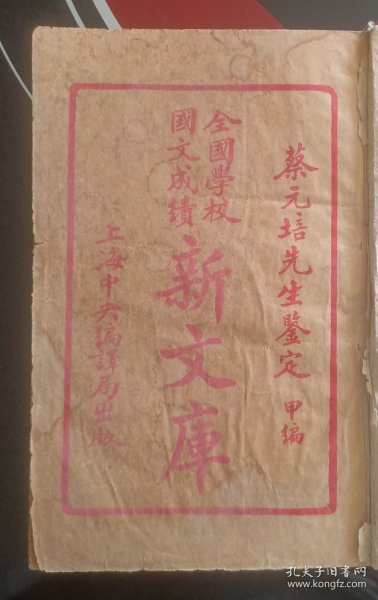 蔡元培先生鑒定 甲編
全國學校
國文成績
新文庫
上海中央編譯局出版
孔夫子旧书网
www.kongfz.com